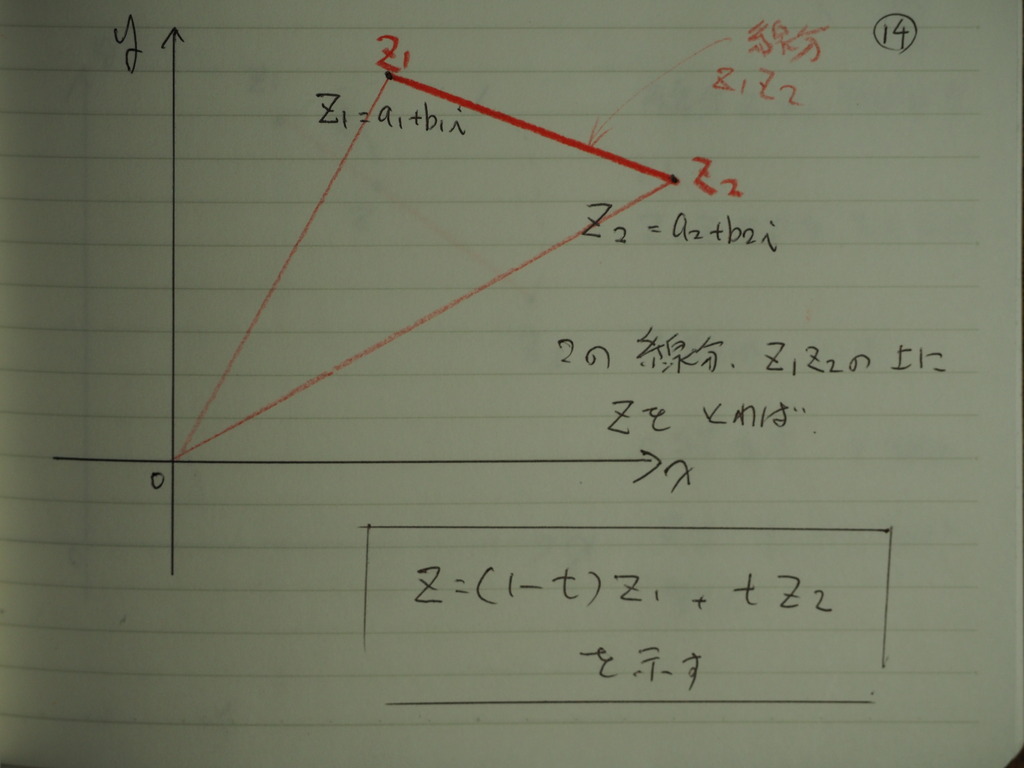 y
⑭
z₁
線分
z₁z₂
z₁=a₁+b₁i
z₂
z₂=a₂+b₂i
この線分、z₁z₂の上に
zをとれば
0
x
z=(1-t)z₁+tz₂
を示す